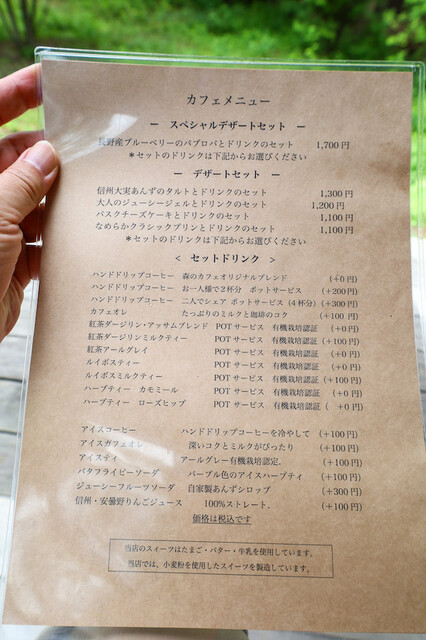 カフェメニュー
ー スペシャルデザートセット ー
長野産ブルーベリーのパブロバとドリンクのセット 1,700 円
＊セットのドリンクは下記からお選びください
ー デザートセット ー
信州大実あんずのタルトとドリンクのセット 1,300 円
大人のジューシージェルとドリンクのセット 1,200 円
バスクチーズケーキとドリンクのセット 1,100 円
なめらかクラシックプリンとドリンクのセット 1,100 円
＊セットのドリンクは下記からお選びください
＜ セットドリンク ＞
ハンドドリップコーヒー 森のカフェオリジナルブレンド (+0 円)
ハンドドリップコーヒー お一人様で２杯分 ポットサービス (+200円)
ハンドドリップコーヒー 二人でシェア ポットサービス (４杯分) (+300円)
カフェオレ たっぷりのミルクと珈琲のコク (+100 円)
紅茶ダージリン・アッサムブレンド POT サービス 有機栽培認証 (+0円)
紅茶ダージリンミルクティー POT サービス 有機栽培認証 (+100円)
紅茶アールグレイ POT サービス 有機栽培認証 (+0円)
ルイボスティー POT サービス 有機栽培認証 (+0円)
ルイボスミルクティー POT サービス 有機栽培認証 (+100円)
ハーブティー カモミール POT サービス 有機栽培認証 (+0円)
ハーブティー ローズヒップ POT サービス 有機栽培認証 ( +0円)
アイスコーヒー ハンドドリップコーヒーを冷やして (+100円)
アイスカフェオレ 深いコクとミルクがぴったり (+100円)
アイスティ アールグレー有機栽培認定、 (+100円)
バタフライピーソーダ パープル色のアイスハーブティ (+100円)
ジューシーフルーツソーダ 自家製あんずシロップ (+300円)
信州・安曇野りんごジュース 100%ストレート、 (+100円)
価格は税込です
当店のスイーツはたまご・バター・牛乳を使用しています。
当店では、小麦粉を使用したスイーツを製造しています。